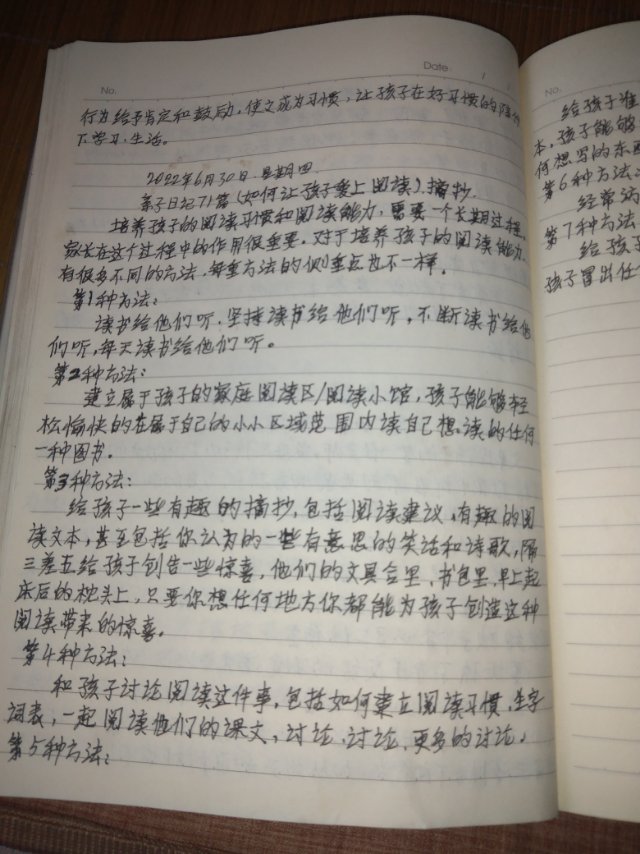 No.
Date / /
行为给予肯定和鼓励，使之成为习惯，让孩子在好习惯的陪伴
下学习、生活。
2022年6月30日 星期四
亲子日记71篇《如何让孩子爱上阅读》摘抄
培养孩子的阅读习惯和阅读能力，需要一个长期过程，
家长在这个过程中的作用很重要。对于培养孩子的阅读能力，
有很多不同的方法，每种方法的侧重点也不一样。
第1种方法：
读书给他们听，坚持读书给他们听，不断读书给他
们听，每天读书给他们听。
第2种方法：
建立属于孩子的家庭阅读区/阅读小馆，孩子能够轻
松愉快的在属于自己的小小区域范围内读自己想读的任何
一种图书。
第3种方法：
给孩子一些有趣的摘抄，包括阅读建议，有趣的阅
读文本，甚至包括你认为的一些有意思的笑话和诗歌，隔
三差五给孩子创告一些惊喜，他们的文具合里，书包里，早上起
床后的枕头上，只要你想任何地方你都能为孩子创造这种
阅读带来的惊喜。
第4种方法：
和孩子讨论阅读这件事，包括如何建立阅读习惯，生字
词表，一起阅读他们的课文，讨论、讨论、更多的讨论。
第5种方法：
No.
给孩子准
本，孩子能够
何想写的东西
第6种方法：
经常
第7种方法
给孩子
孩子冒出任